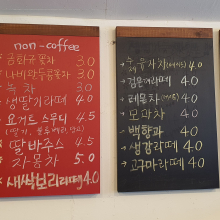 non-coffee
금화규꽃차 3.0
나비완두콩꽃차 3.0
녹차 3.0
생딸기라떼 4.0
요거트 스무디 4.5
(딸기, 블루베리, 망고)
딸바주스 4.5
자몽차 5.0
새싹보리라떼 4.0
수제 유자차 4.0
검은깨라떼 4.0
레몬차 4.0
모과차 4.0
백향과 4.0
생강라떼 4.0
고구마라떼 4.0